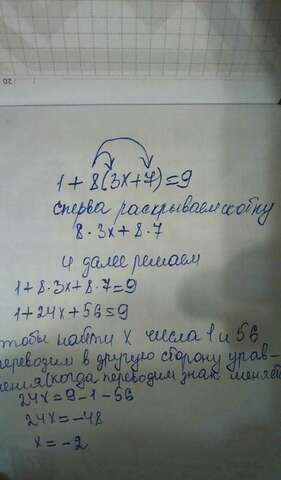 1+8(3x+7)=9
сперва раскрываем скобку
8·3x+8·7
и далее решаем
1+8·3x+8·7=9
1+24x+56=9
чтобы найти x числа 1 и 56
переводим в другую сторону урав-
нения(когда переводим знак меняет
24x=9-1-56
24x=-48
x=-2